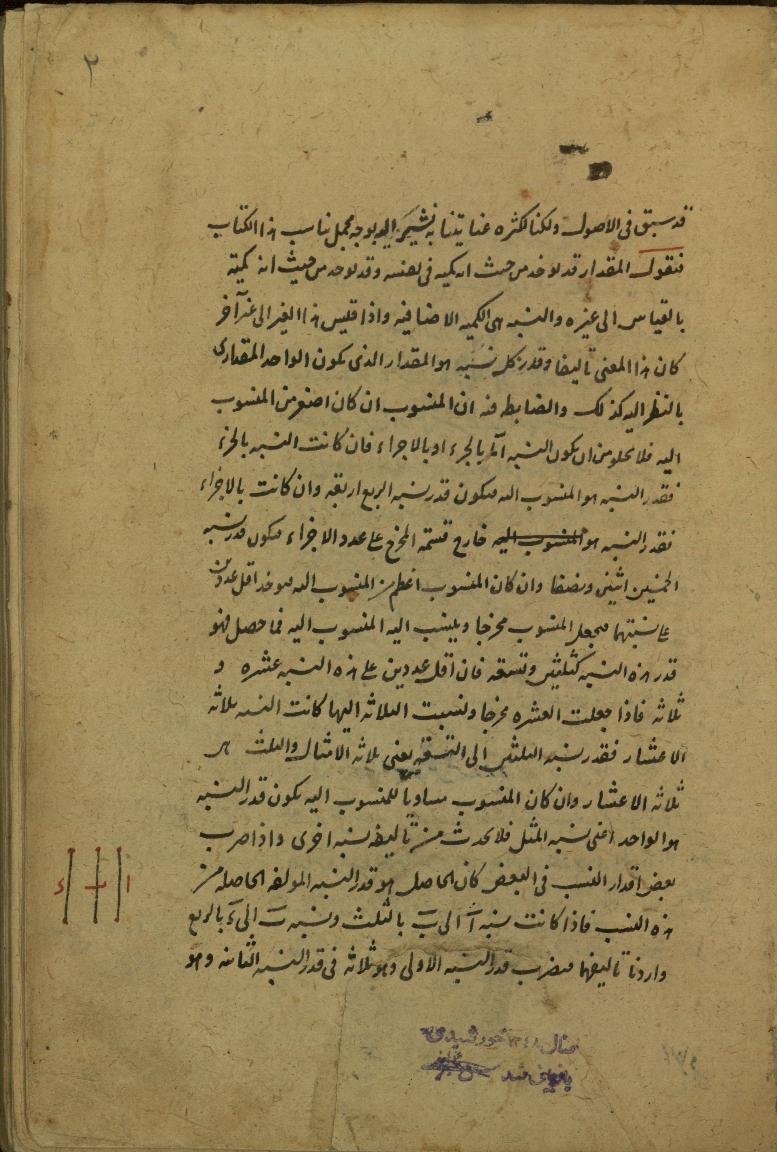 ٢
قد سبق فى الاصول ولكنا لكثره عنايتنا به نشير اليه بوجه مجمل يناسب هذا الكتاب
فنقول المقدار قد يوخد من حيث انه كميه فى نفسه وقد يوخد من حيث انه كميته
بالقياس الى غيره والنسبه هى الكميه الاضافيه واذا قليس هذا الغير الى غير آخر
كان هذا المعنى تأليفا وقدر كل نسبه هو المقدار الذى يكون الواحد المقدارى
بالنظر اليه كذلك والضابط فيه ان المنسوب ان كان اصغر من المنسوب
اليه فلا يخلو من ان يكون النسبه اما بالجزء او بالاجزاء فان كانت النسبه بالجزء
فقدر النسبه هو المنسوب اليه فيكون قدر نسبه الربع اربعه وان كانت بالاجزاء
فقدر النسبه هو المنسوب اليه خارج قسمه المخرج على عدد الاجزاء فيكون قدر نسبه
الخمسين اثنين ونصفا وان كان المنسوب اعظم من المنسوب اليه فيوخد اقل عددين
على نسبتهما فيجعل المنسوب مخرجا وينسب اليه المنسوب اليه فما حصل فهو
قدر هذه النسبه كثلثين وتسعه فان اقل عددين على هذه النسبه عشره و
ثلاثه فاذا جعلت العشره مخرجا ونسبت الثلاثه اليها كانت النسبه ثلاثه
الاعشار فقدر نسبه الثلثين الى التسعه يعنى ثلاثه الامثال والثلث هى
ثلاثه الاعشار وان كان المنسوب مساويا للمنسوب اليه يكون قدر النسبه
هو الواحد اعنى نسبه المثل فلا يحدث من تأليفه نسبه اخرى واذا ضرب
بعض اقدار النسب فى البعض كان الحاصل هو قدر النسبه المولفه الحاصله من
هذه النسب فاذا كانت نسبه آ الى ب بالثلث ونسبه ب الى ء بالربع
واردنا تأليفها فيضرب قدر النسبه الاولى وهو ثلاثه فى قدر النسبه الثانيه وهو
ا ب ء
سال ١٣٤٨ خورشيدى
بازبينى شد